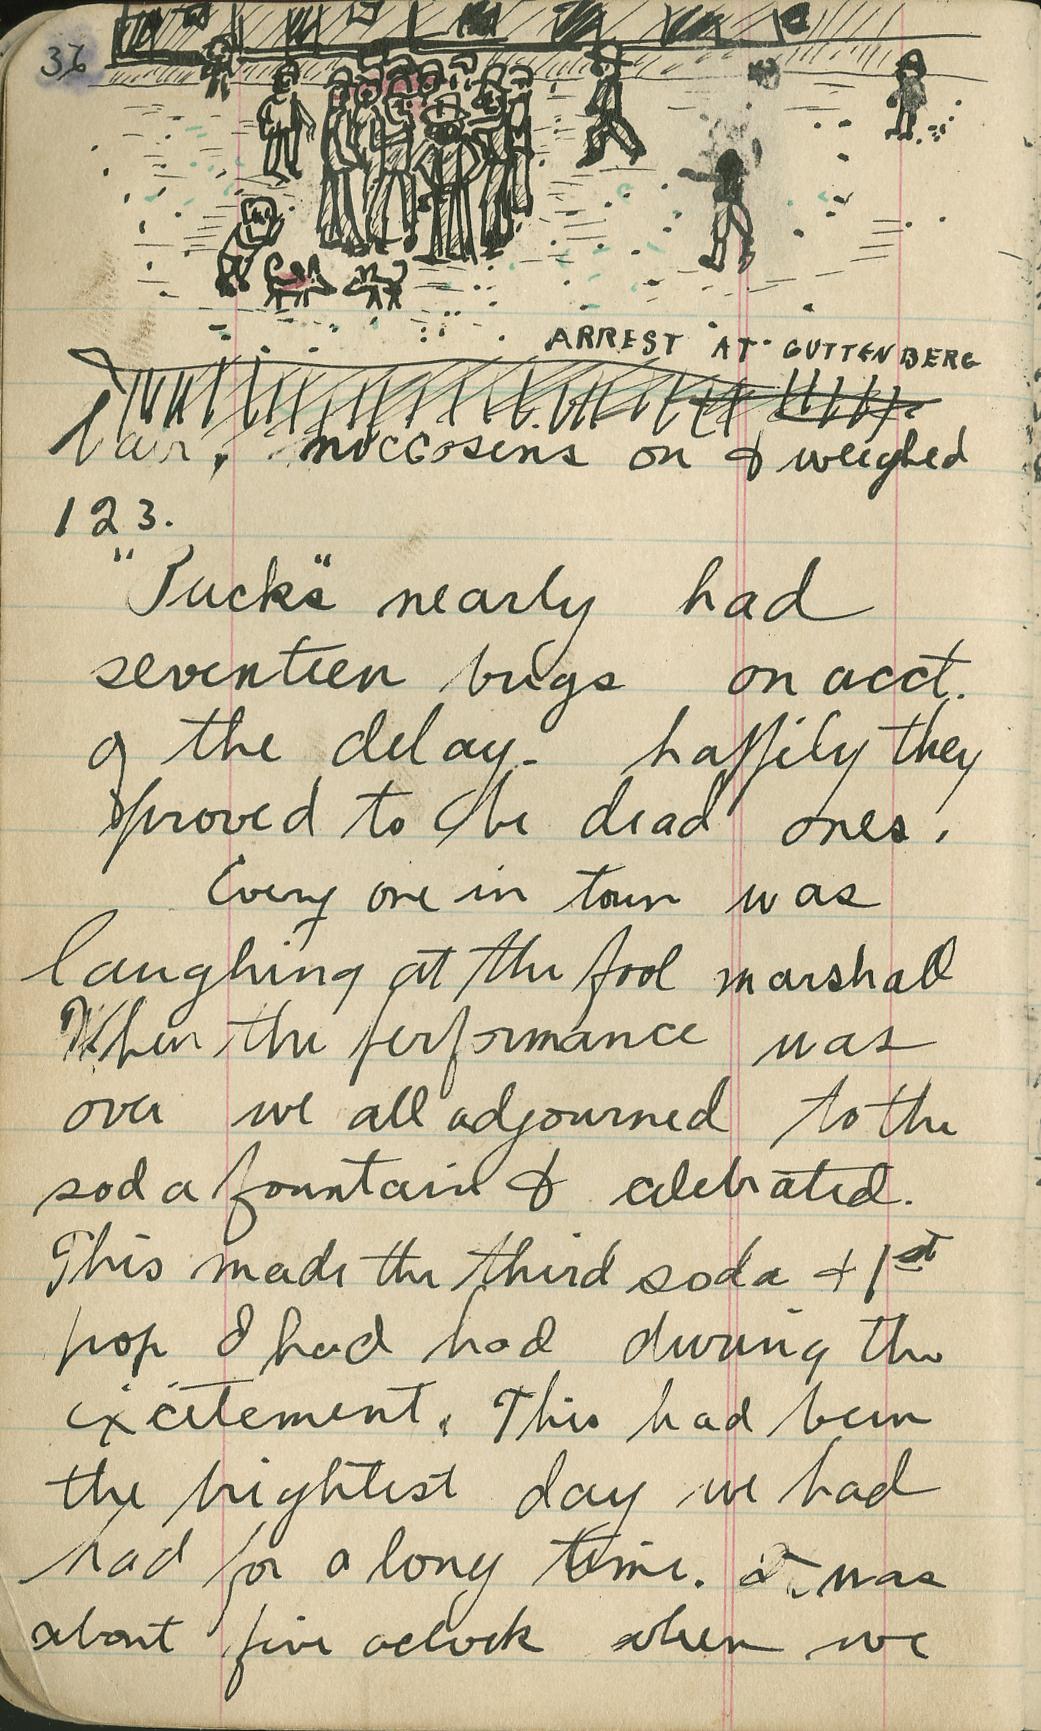 36
ARREST AT GUTTENBERG
hair, moccosens on & weighed
123.
"Pucks" nearly had
seventeen bugs on acct.
of the delay - happily they
proved to be dead ones.
Every one in town was
laughing at the fool marshall
When the performance was
over we all adjourned to the
soda fountain & celebrated.
This made the third soda + 1st
pop I had had during the
excitement. This had been
the brightest day we had
had for a long time. It was
about five oclock when we